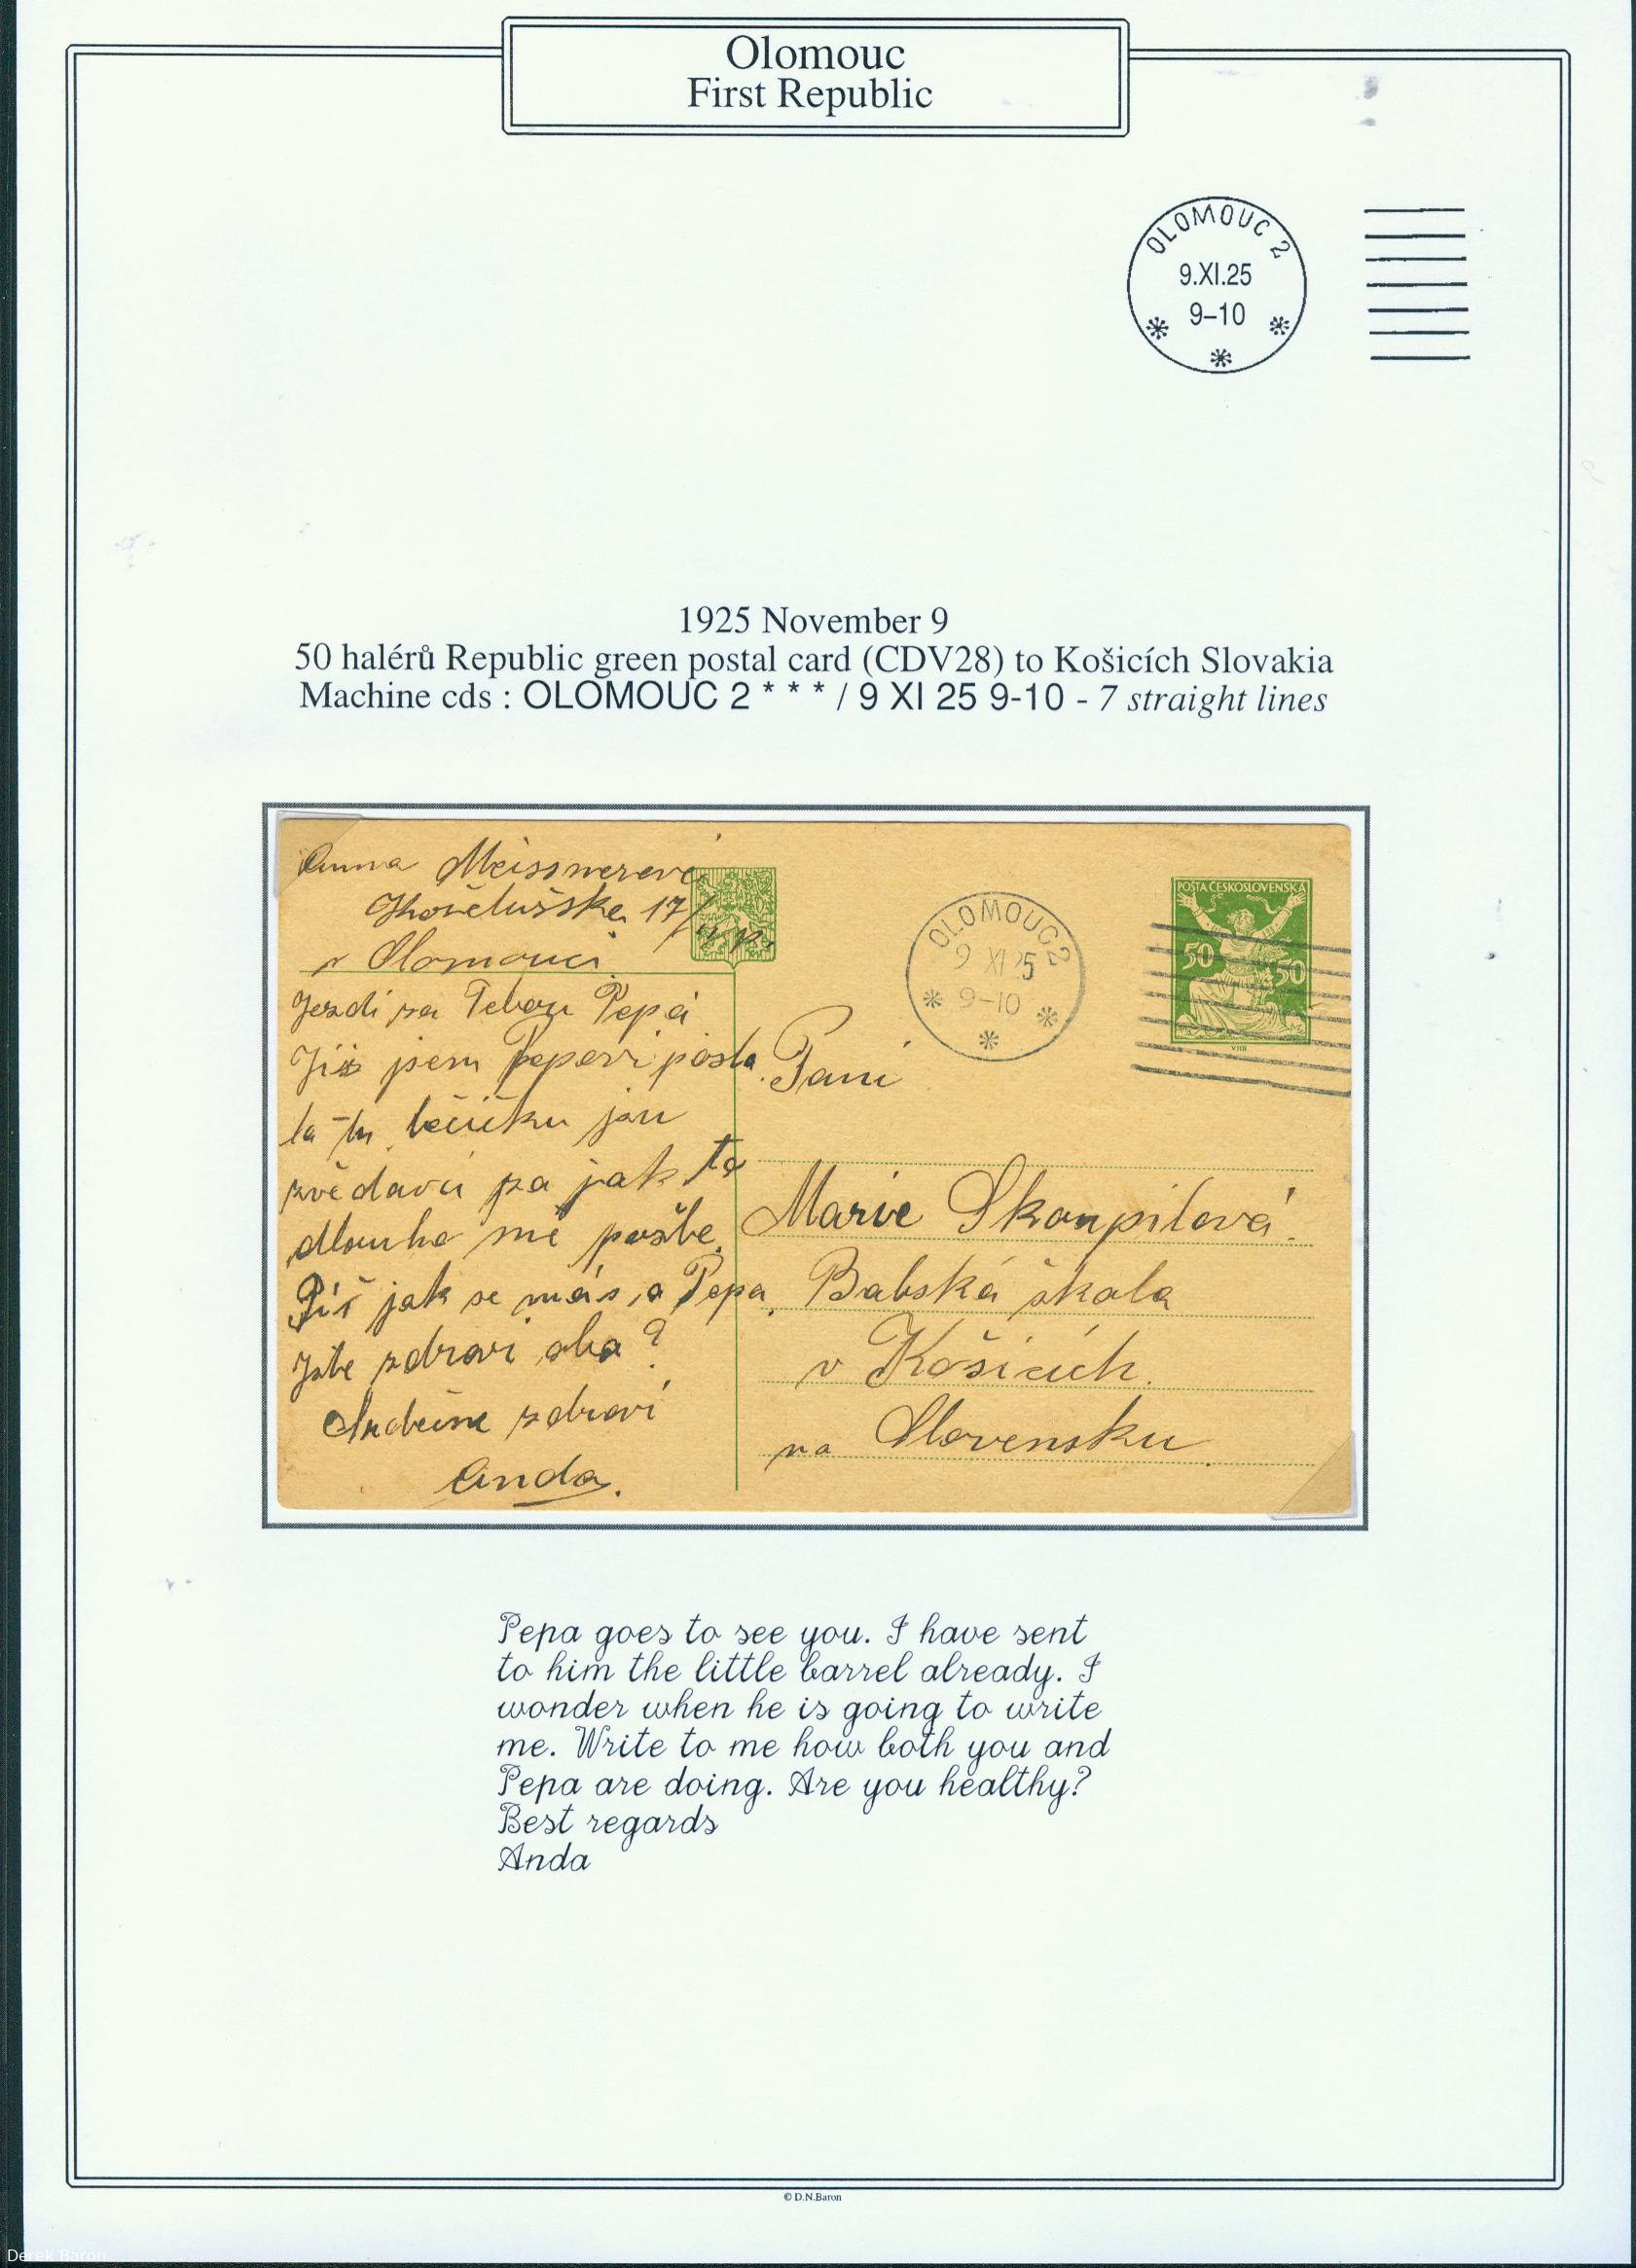 Olomouc
First Republic
OLOMOUC 2
9.XI.25
9–10
* * *
1925 November 9
50 halérů Republic green postal card (CDV28) to Košicích Slovakia
Machine cds : OLOMOUC 2 * * * / 9 XI 25 9-10 - 7 straight lines
Anna Meissnerová
17/
v Olomouci
Jezdí za Tebou Pepa
Již jsem Pepovi posla
la tu bečičku jsu
zvědavá za jak to
dlouho mě pošle
Piš jak se máš, a Pepa.
Jste zdraví oba?
Srdečně zdraví
Anda.
POŠTA ČESKOSLOVENSKÁ
50 50
VIIB
OLOMOUC 2
9 XI 25
9–10
* * *
Paní
Marie Skoupilová.
Babská škola
v Košicích.
na Slovensku.
Pepa goes to see you. I have sent
to him the little barrel already. I
wonder when he is going to write
me. Write to me how both you and
Pepa are doing. Are you healthy?
Best regards
Anda
© D.N.Baron
Derek Baron